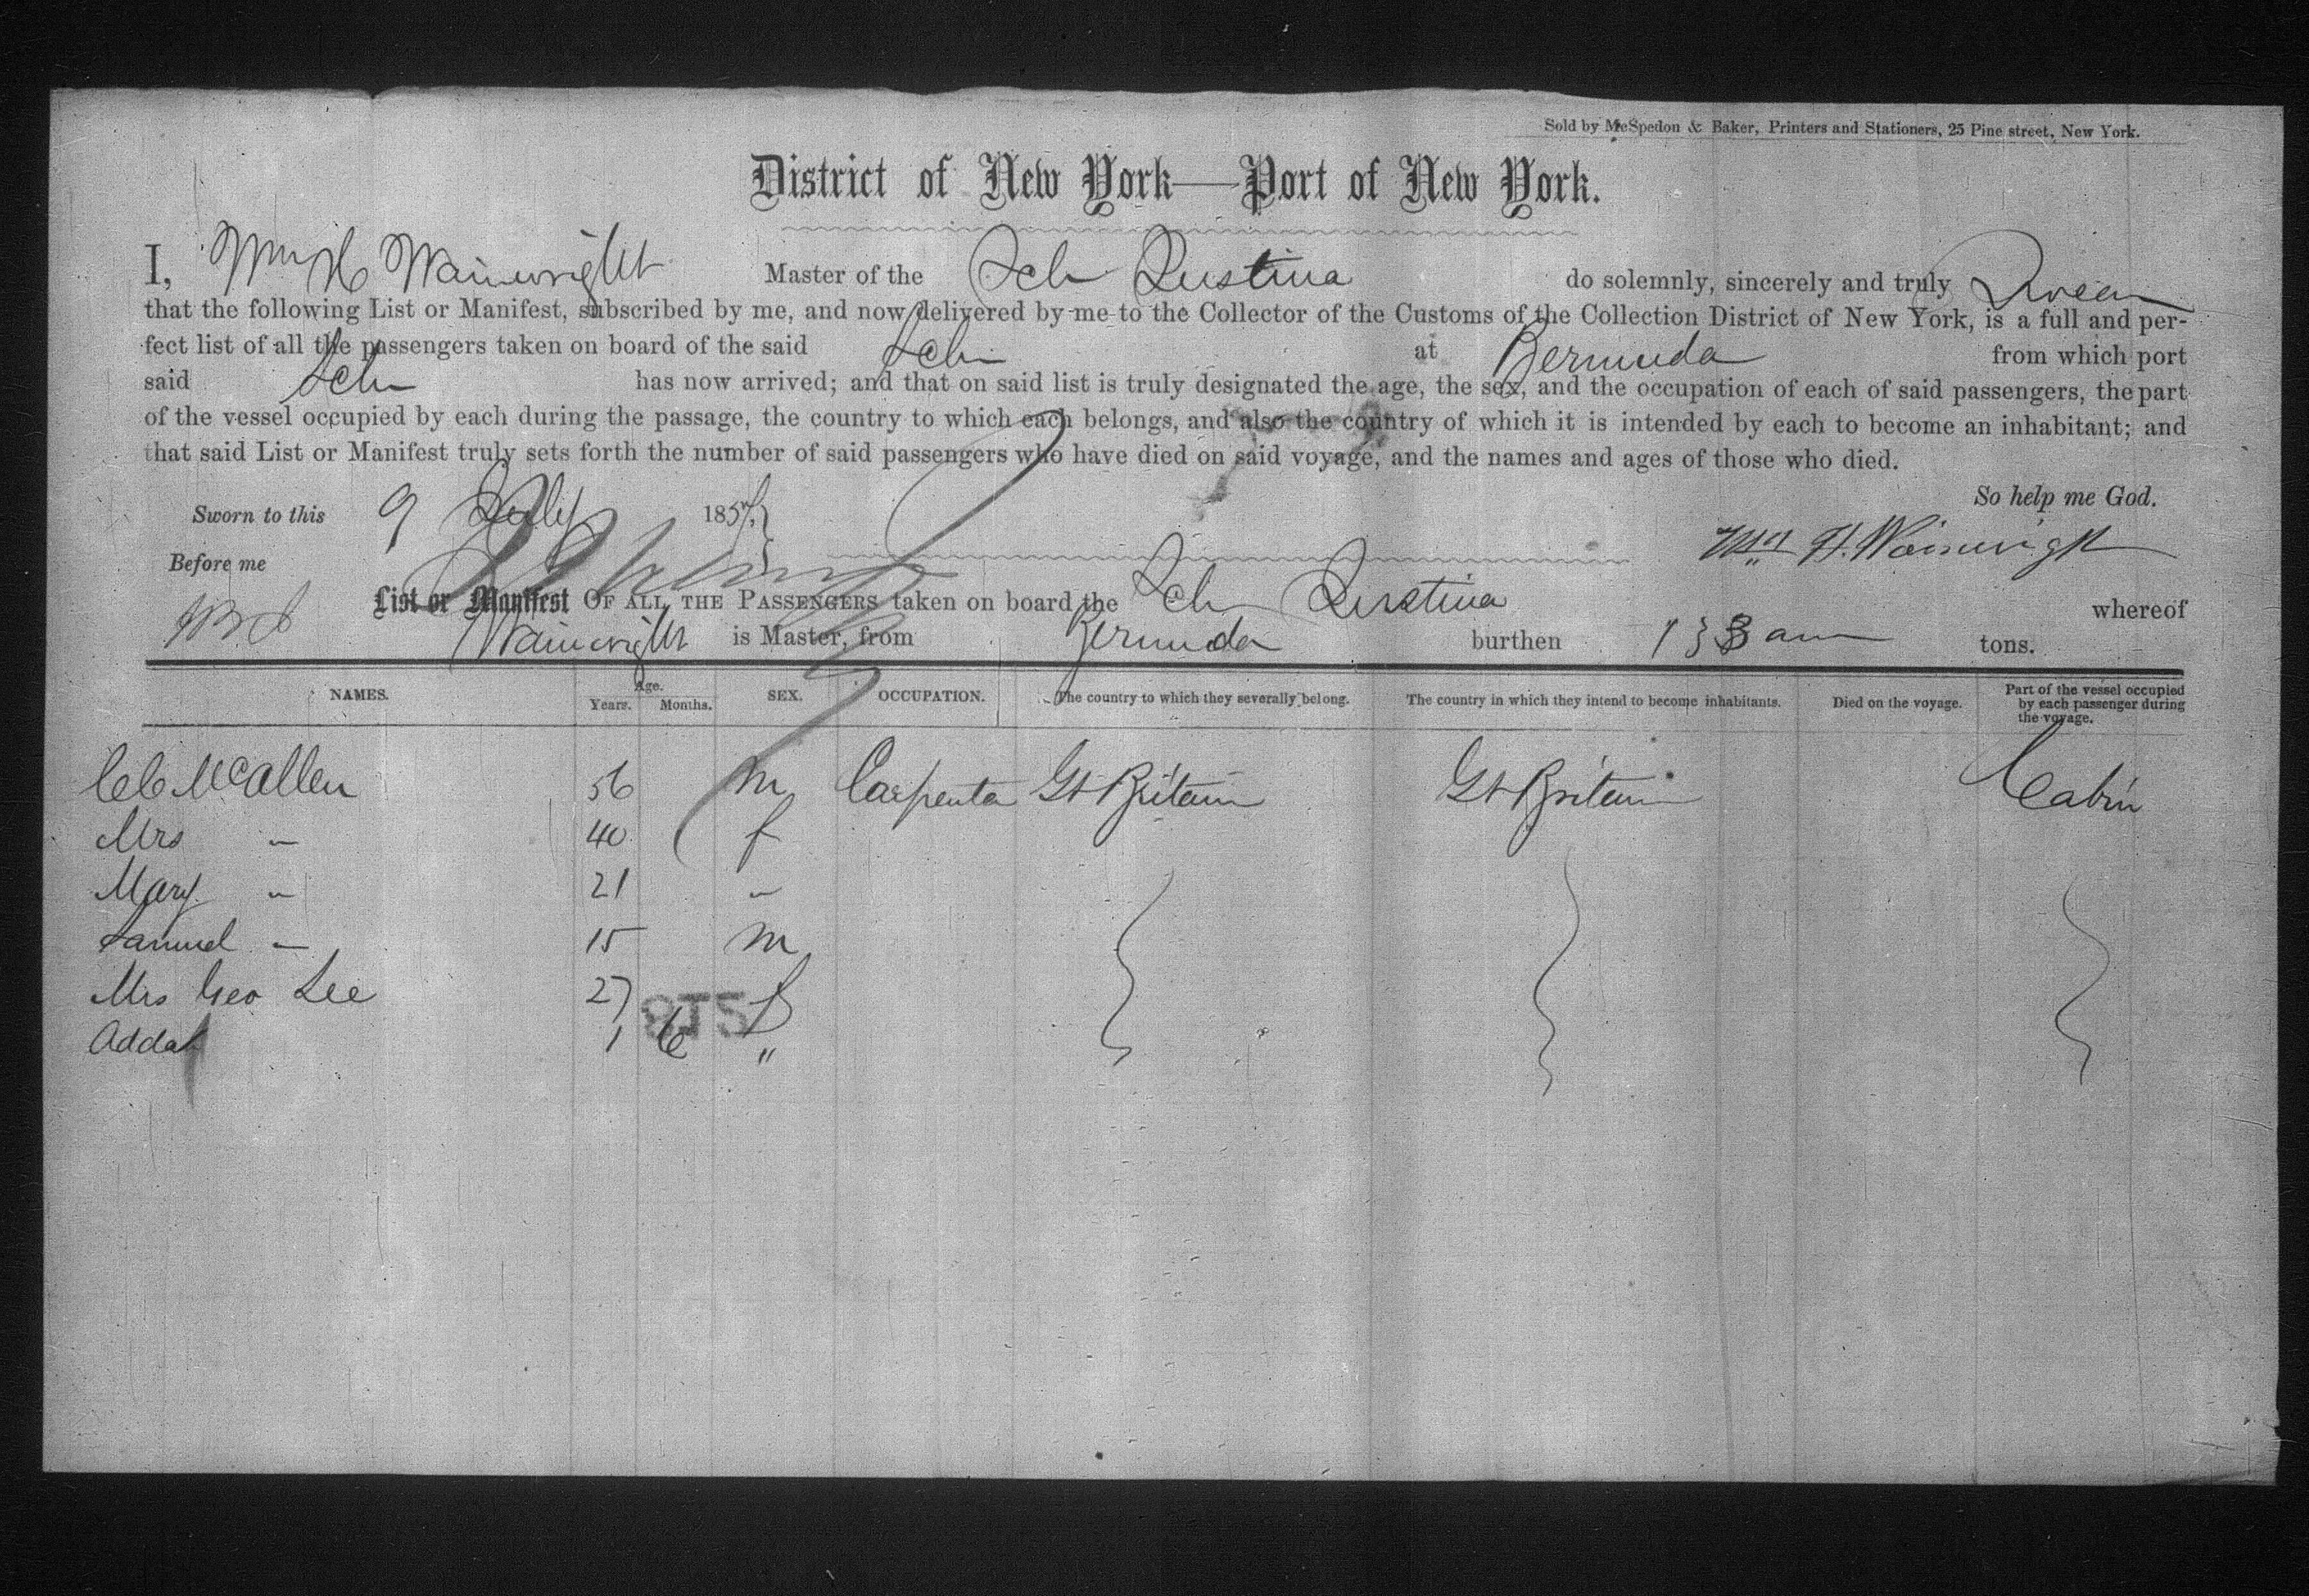 Sold by McSpedon & Baker, Printers and Stationers, 25 Pine street, New York.
District of New York—Port of New York.
I, Wm H Wainwright Master of the Sch do solemnly, sincerely and truly Swear
that the following List or Manifest, subscribed by me, and now delivered by me to the Collector of the Customs of the Collection District of New York, is a full and per-
fect list of all the passengers taken on board of the said Sch at Bermuda from which port
said Sch has now arrived; and that on said list is truly designated the age, the sex, and the occupation of each of said passengers, the part
of the vessel occupied by each during the passage, the country to which each belongs, and also the country of which it is intended by each to become an inhabitant; and
that said List or Manifest truly sets forth the number of said passengers who have died on said voyage, and the names and ages of those who died.
So help me God.
Sworn to this 9 July 185
Wm H. Wainwright
Before me
List or Manifest OF ALL THE PASSENGERS taken on board the Sch whereof
Wainwright is Master, from Bermuda burthen tons.
NAMES. Age. Years. Months. SEX. OCCUPATION. The country to which they severally belong. The country in which they intend to become inhabitants. Died on the voyage. Part of the vessel occupied by each passenger during the voyage.
McCallen 56 m Carpenter Gt Britain Gt Britain Cabin
Mrs " 40 f
Mary " 21 "
Samuel " 15 m
Mrs Geo Lee 27 f
1 6 "